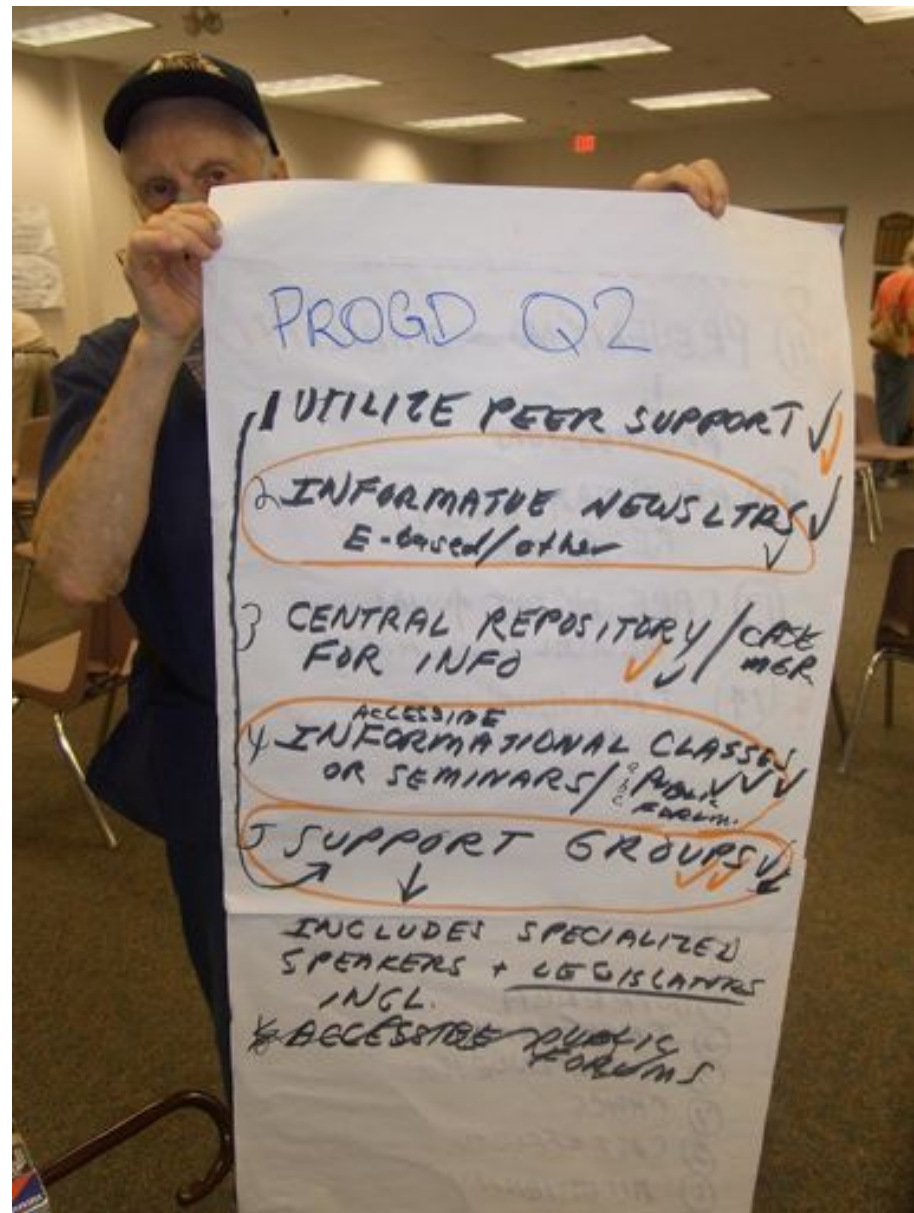 PROGD Q2
1 UTILIZE PEER SUPPORT
2 INFORMATVE NEWSLTRS
E-based/other
3 CENTRAL REPOSITORY / CASE
FOR INFO MGR
ACCESSIBLE
4 INFORMATIONAL CLASSES
OR SEMINARS / PUBLIC
FORUM.
5 SUPPORT GROUPS
INCLUDES SPECIALIZED
SPEAKERS + LEGISLATORS
INCL.
ACCESSIBLE PUBLIC
FORUMS